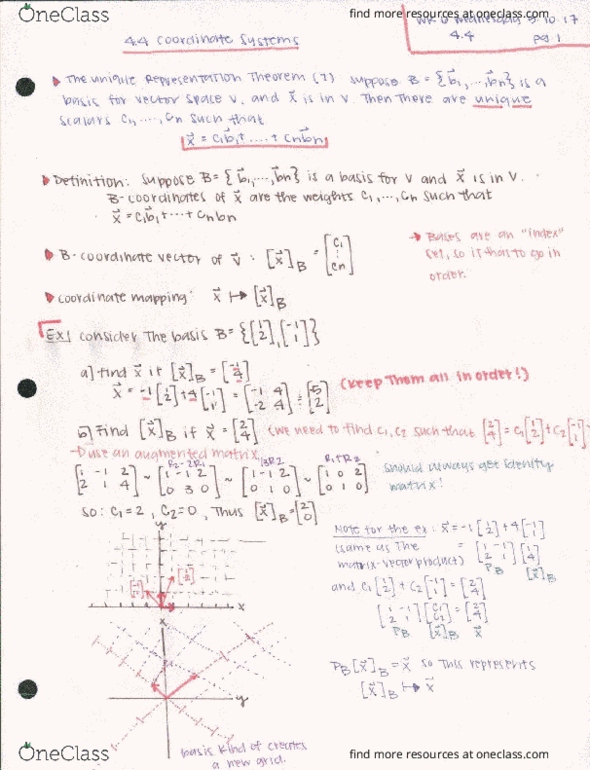 OneClass
find more resources at oneclass.com
4.4
pg 1
4.4 Coordinate Systems
The unique Representation Theorem (7) suppose B = {b⃗₁,…,b⃗n} is a
basis for vector space V, and x⃗ is in V. Then there are unique
scalars c₁,…,cn such that
x⃗ = c₁b⃗₁+…+cnb⃗n
Definition: suppose B = {b⃗₁,…,b⃗n} is a basis for V and x⃗ is in V.
B-coordinates of x⃗ are the weights c₁,…,cn such that
x⃗ = c₁b⃗₁+…+cnbn
B-coordinate vector of v⃗ : [x⃗]B = [c₁ ⋮ cn]
→ Bases are an "index"
set, so it has to go in
order.
coordinate mapping: x⃗ ↦ [x⃗]B
Ex) consider the basis B = {[1 2], [-1 1]}
a) find x⃗ if [x⃗]B = [-1 4]
x⃗ = -1[1 2] + 4[-1 1] =
(keep them all in order!)
b) Find [x⃗]B if x⃗ = [2 4] (we need to find c₁, c₂ such that [2 4] = c₁[1 2] + c₂[-1 1]
→ use an augmented matrix
R₂-2R₁ 1/3R2 R₁+R₂
[1 -1 2 / 2 1 4] ~ [1 -1 2 / 0 3 0] ~ [1 -1 2 / 0 1 0] ~ [1 0 2 / 0 1 0]
should always get identity
matrix!
so: c₁=2, c₂=0, Thus [x⃗]B = [2 0]
Note for the ex: x⃗ = -1[1 2] + 4[-1 1]
(same as the
matrix-vector product)
PB [x⃗]B
and c₁[1 2] + c₂[-1 1] = [2 4]
[1 -1 / 2 1][c₁ c₂] = [2 4]
PB [x⃗]B x⃗
y
x
x
y
PB[x⃗]B = x⃗ so this represents
[x⃗]B ↦ x⃗
basis kind of creates
a new grid.
OneClass
find more resources at oneclass.com